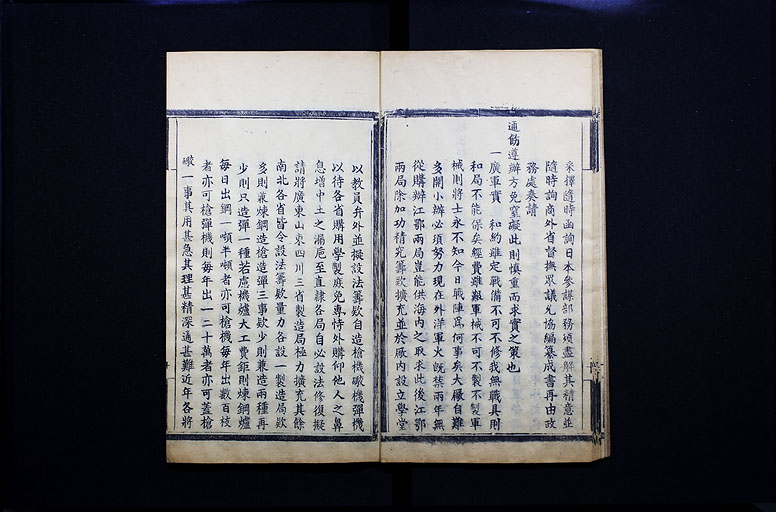 采擇隨時函詢日本參謀部務須盡解其精意並
隨時詢商外省督撫眾議允協編纂成書再由政
務處奏請
通飭遵辦方免窒礙此則慎重而求實之策也
一廣軍實 和約雖定戰備不可不修我無職具則
和局不能保矣經費雖艱軍械不可不製不製軍
械則將士永不知今日戰陣為何事矣大厰自難
多開小辦必須努力現在外洋軍火既禁兩年無
從購辦江鄂兩局豈能供海內之取求此後江鄂
兩局除加功精究籌款擴充並於厰內設立學堂
以教員弁外並擬設法籌款自造槍機礮機彈機
以待各省購用學製庶免專恃外購仰他人之鼻
息增中土之漏巵至直隸各局自必設法修復擬
請將廣東山東四川三省製造局極力擴充其餘
南北各省皆令設法籌欵量力各設一製造局欵
多則兼煉鋼造槍造彈三事欵少則兼造兩種再
少則只造彈一種若慮機爐大工費鉅則煉鋼爐
每日出鋼一噸半噸者亦可槍機每年出數百枝
者亦可槍彈機則每年出一二十萬者亦可蓋槍
礮一事其用甚急其理甚精深通甚難近年各將